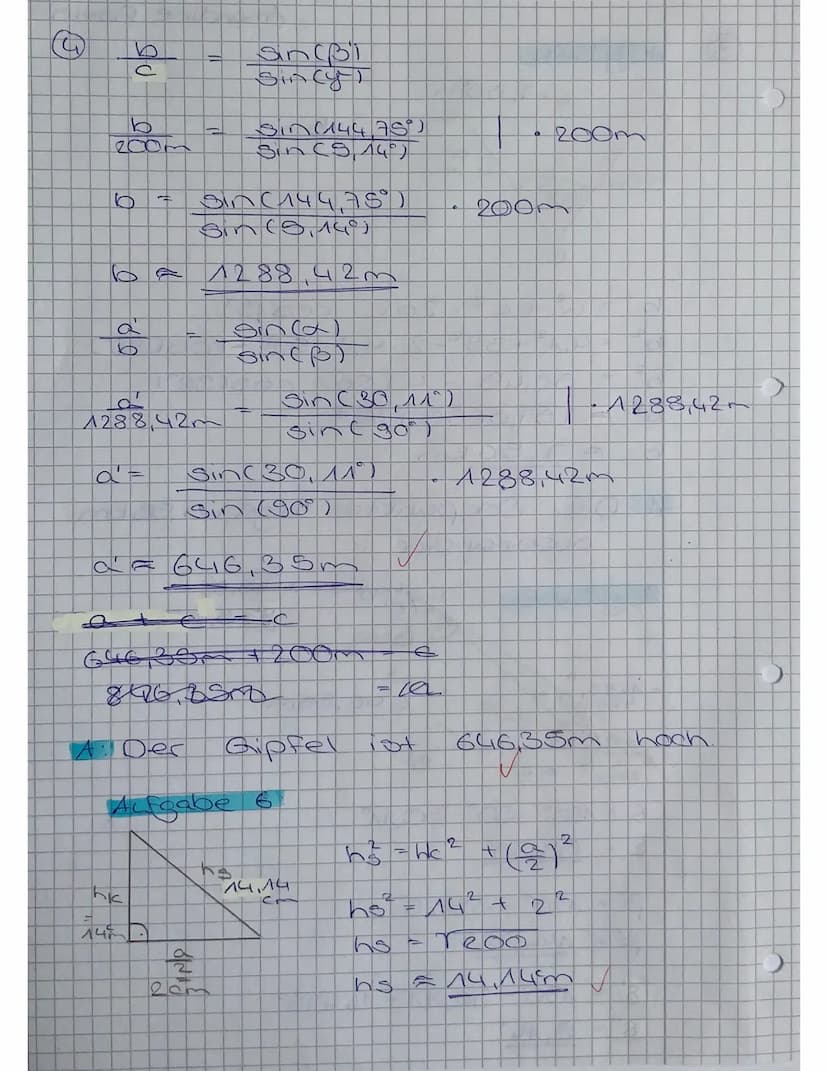 4
b/c = sin(β')/sin(γ)
b/200m = sin(144,75°)/sin(5,14°) | · 200m
b = sin(144,75°)/sin(5,14°) · 200m
b ≈ 1288,42m
a'/b = sin(α)/sin(β)
a'/1288,42m = sin(30,11°)/sin(90°) | · 1288,42m
a' = sin(30,11°)/sin(90°) · 1288,42m
a' ≈ 646,35m ✓
a + c = c
646,35m + 200m = c
846,35m = a
A: Der Gipfel ist 646,35m hoch.
✓
Aufgabe 6
hs² = hk² + (a/2)²
hs 14,14 cm
hk = 14cm
hs² = 14² + 2²
hs = √200
a/2 = 2cm
hs ≈ 14,14cm ✓